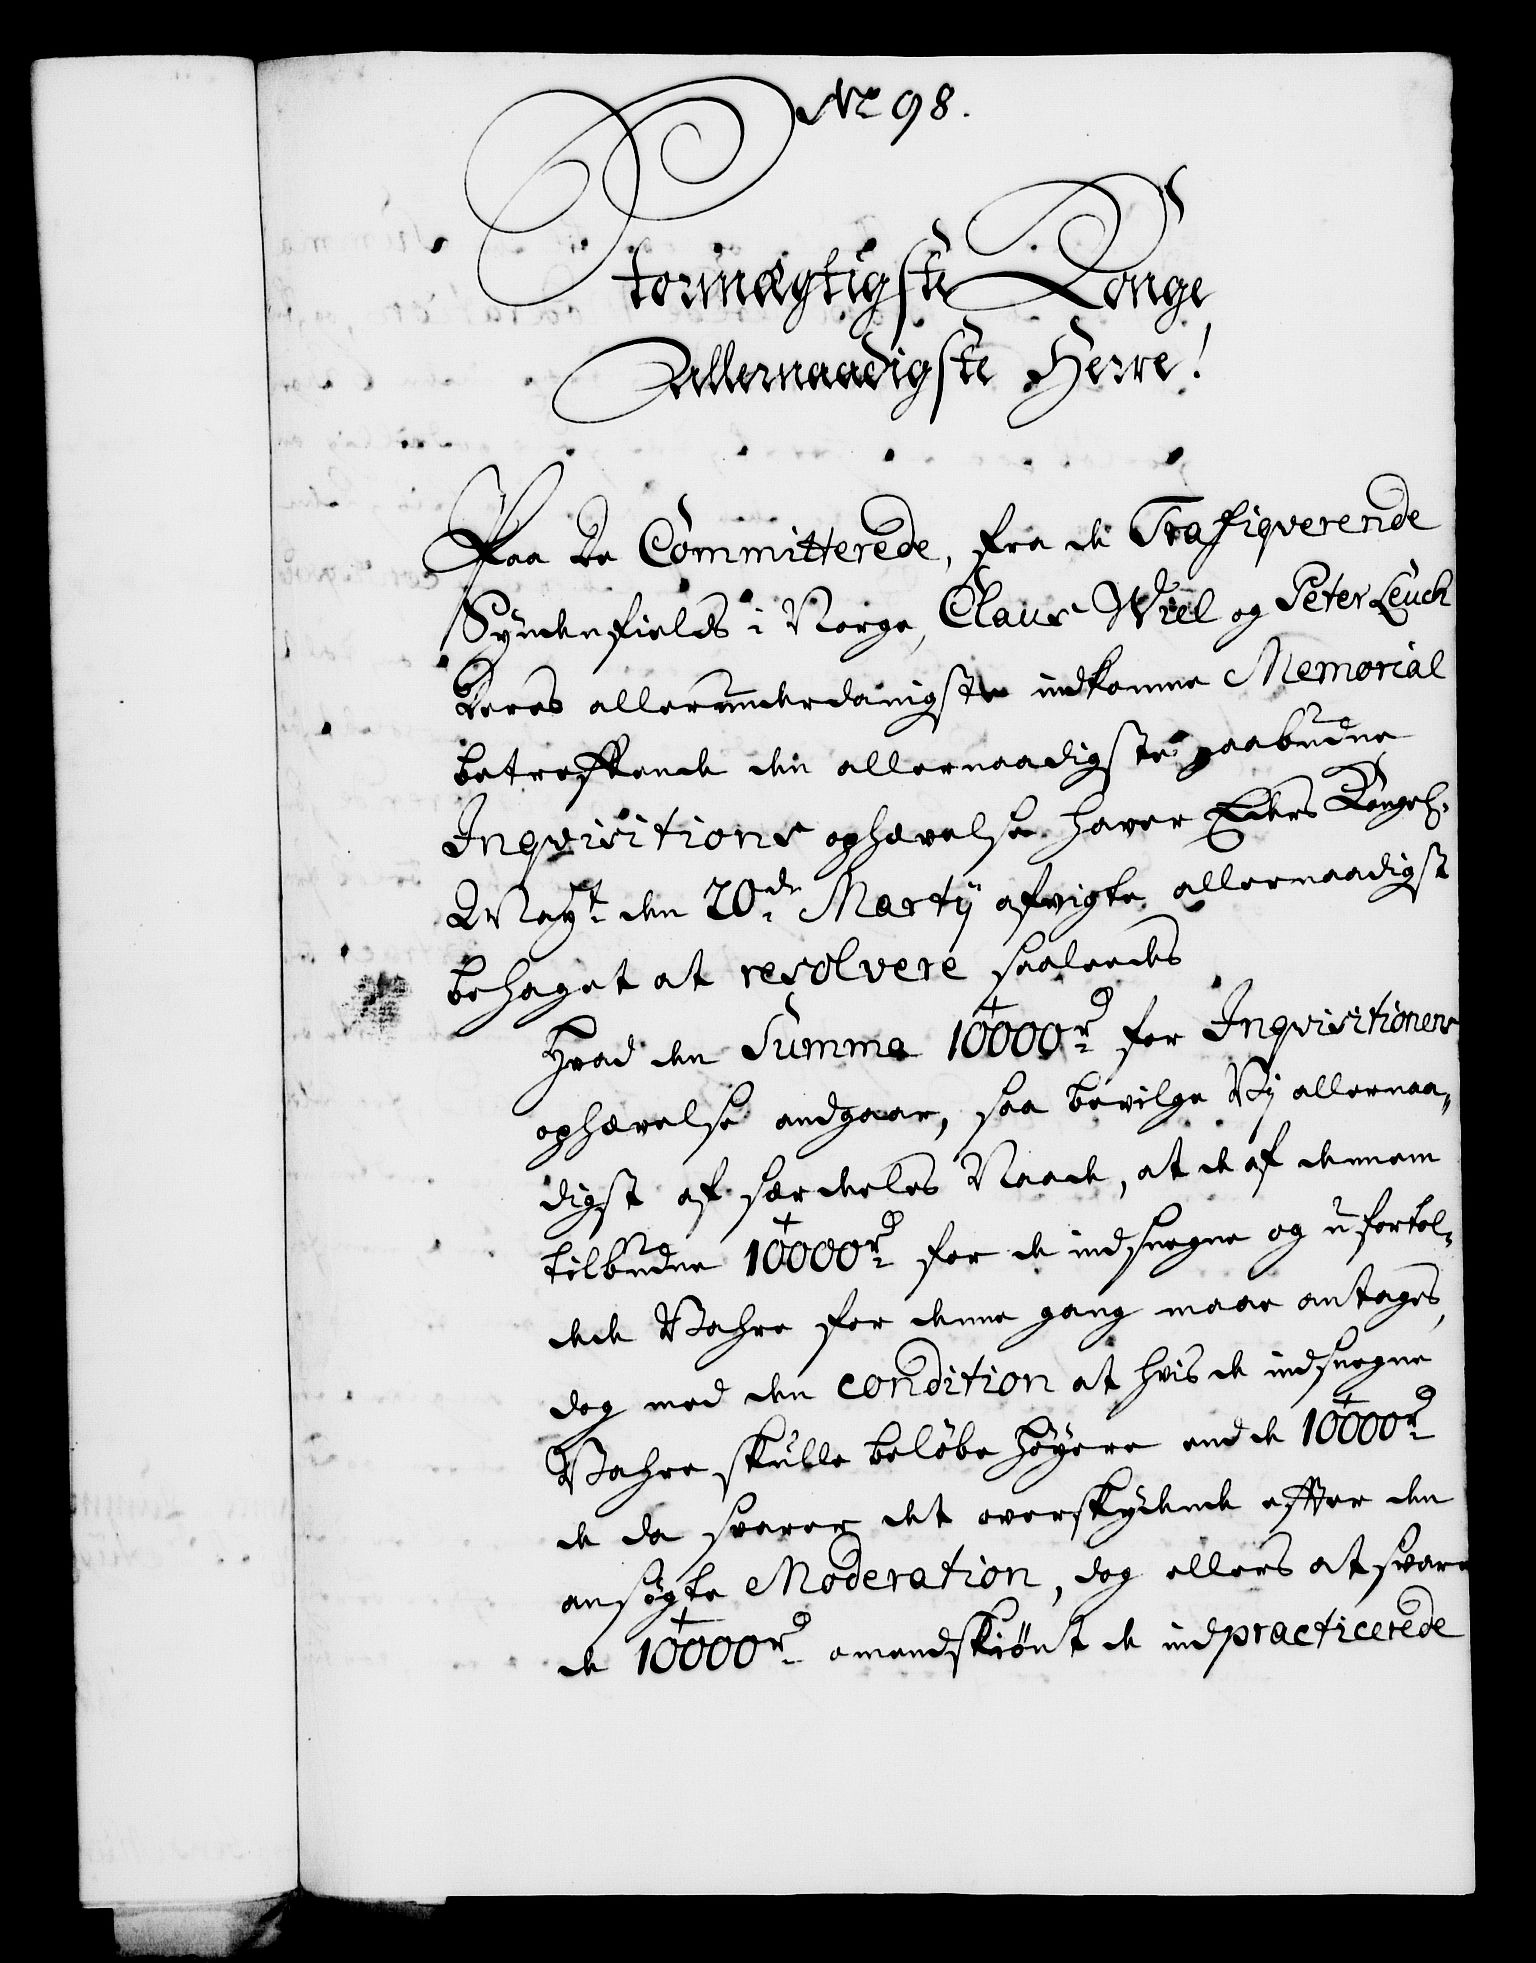 No 98.
Stormægtigste Konge
Allernaadigste Herre!
Paa De Committerede, fra de Trafiqverende
Syndenfields i Norge, Claus Wiel og Peter Leuch
Deres allerunderdanigste indkomne Memorial
betreffende den allernaadigste paabudne
Inqvisitions ophævelse haver Eders Kongel:
Mayt: den 20de Martij afvigte allernaadigst
behaget at resolvere saaledes
Hvad den Summa 10000 rd for Inqvisitionens
ophævelse andgaar, saa bevilge Vij allernaa„
digst af særdeles Naade, at de af dennem
tilbudne 10000 rd for de indsnegne og ufortol„
dede Wahre for denne gang maae antages,
dog med den condition at hvis de indsnegne
Wahre skulle beløbe høyere end de 10000 rd
de da svarer det overskydende efter den
ansøgte Moderation, dog ellers at svare
de 10000 rd omendskiønt de indpracticerede